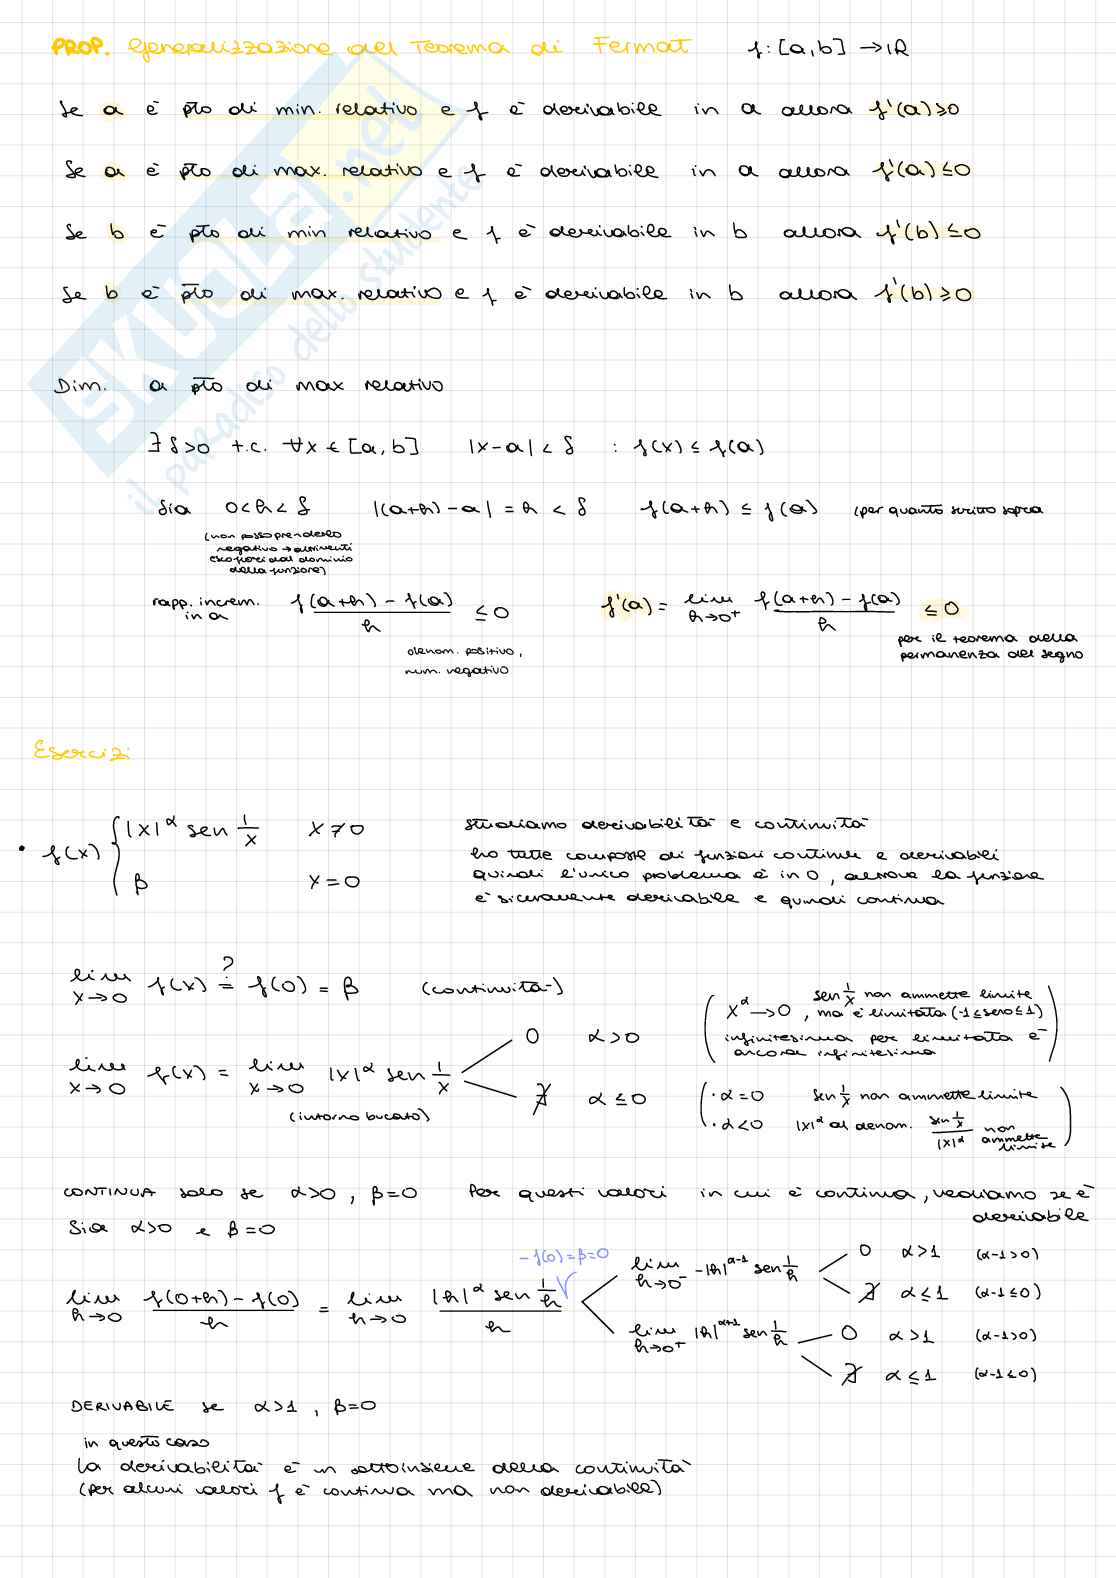 PROP. Generalizzazione del Teorema di Fermat f: [a,b] → IR
Se a è pto di min. relativo e f è derivabile in a allora f'(a) ≥ 0
Se a è pto di max. relativo e f è derivabile in a allora f'(a) ≤ 0
Se b è pto di min relativo e f è derivabile in b allora f'(b) ≤ 0
Se b è pto di max. relativo e f è derivabile in b allora f'(b) ≥ 0
SKUOLA.net
il paradiso dello studente
Dim. a pto di max relativo
∃ δ>0 t.c. ∀x ∈ [a,b] |x-a| < δ : f(x) ≤ f(a)
Sia 0<h<δ |(a+h)-a| = h < δ f(a+h) ≤ f(a) (per quanto scritto sopra
(non posso prenderlo
negativo → altrimenti
esco fuori dal dominio
della funzione)
rapp. increm. in a (f(a+h) - f(a))/h ≤ 0 f'(a) = lim h→0⁺ (f(a+h) - f(a))/h ≤ 0
denom. positivo,
num. negativo
per il teorema della
permanenza del segno
Esercizi
• f(x) { |x|^α sen 1/x x ≠ 0
β x = 0
studiamo derivabilità e continuità
ho tutte composte di funzioni continue e derivabili
quindi l'unico problema è in 0, altrove la funzione
è sicuramente derivabile e quindi continua
lim x→0 f(x) ?= f(0) = β (continuità)
lim x→0 f(x) = lim x→0 |x|^α sen 1/x
(intorno bucato)
0 α>0
∄ α ≤ 0
(x^α → 0, sen 1/x non ammette limite
ma è limitata (-1≤seno≤1)
infinitesima per limitata è
ancora infinitesima)
(· α=0 sen 1/x non ammette limite
· α<0 |x|^α al denom. (sen 1/x)/|x|^α non
ammette
limite)
CONTINUA solo se α>0, β=0 Per questi valori in cui è continua, vediamo se è
derivabile
Sia α>0 e β=0
-f(0)=β=0
lim h→0 (f(0+h) - f(0))/h = lim h→0 (|h|^α sen 1/h)/h
lim h→0⁻ -|h|^(α-1) sen 1/h
0 α>1 (α-1>0)
∄ α≤1 (α-1≤0)
lim h→0⁺ |h|^(α-1) sen 1/h
0 α>1 (α-1>0)
∄ α≤1 (α-1≤0)
DERIVABILE se α>1, β=0
in questo caso
la derivabilità è un sottoinsieme della continuità
(per alcuni valori f è continua ma non derivabile)